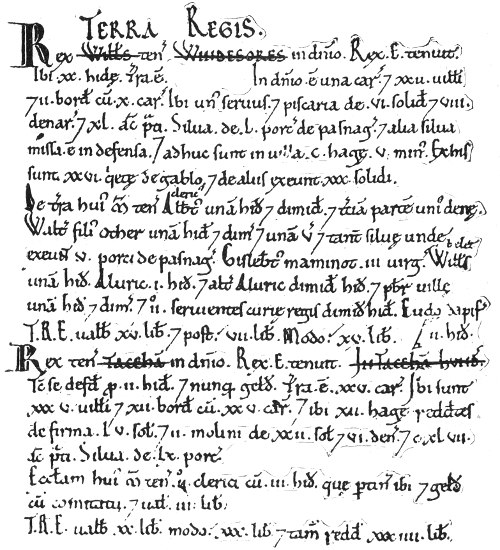 TERRA REGIS.
Rex Wills ten' WINDESORES in dnĩo. Rex. E. tenuit.
Ibi. xx. hidę. Tr̃a. ẽ. In dnĩo. ẽ una car̃. 7 xxii. uilli
7 ii. bord̃ cũ. x. car̃. Ibi un' seruus. 7 piscaria de. vi. solid̃ 7 viii.
denar̃. 7 xl. ac̃ p̃ti. Silua. de. l. porc̃ de pasnag̃. 7 alia silua
missa. ẽ in defensa. 7 adhuc sunt in uilla. c. hagę. v. min'. Ex his
sunt xxvi. q'etę de gablo. 7 de aliis exeunt xxx. solidi.
De tr̃a hui' m̃ ten' Albt' cleric' unã hid̃ 7 dimid̃. 7 t̃ciã partẽ uni' denę.
Walt̃ fili' Other unã hid̃. 7 dim̃. 7 unã v̊. 7 tant̃ siluę unde
exeun̄t v. porci de pasnag̃. Gislebt' maminot. iii. virg̃. Wills
unã hid̃. Aluric. i. hid̃. 7 alt̃ Aluric dimid̃ hid̃. 7 pb̃r uillę
unã hid̃ 7 dim̃. 7 ii. seruientes curię regis dimid̃ hid̃. Eudo dapif̃
T.R.E. ualb̃. xv. lib̃. 7 post̃. vii. lib̃. Modo. xv. lib̃. ii. hid̃.
Rex ten' in dnĩo. Rex. E. tenuit.
T̃c se defd̃ p. ii. hid̃. 7 nunq̃ geld̃. Tr̃a. ẽ. xxv. car̃. Ibi sunt
xxxv. uilli 7 xii. bord̃ cũ. xxv. car̃. 7 ibi xii. hagę redd̃tes
de firma. lv. sol̃. 7 ii. molini de. xxii. sol̃ 7 vi. den̄. 7 c.xlvii.
ac̃ p̃ti. Silua. de. lx. porc̃.
Eccl̃am hui' m̃ ten'. cleric̃ cũ. iii. hid̃. quę p'tin̄ ibi 7 geld̃
cũ comitatu. 7 ual̃. iii. lib̃.
T.R.E. ualb̃. xx. lib̃. modo. xxx. lib̃. 7 tam̃ redd̃ xxxiiii. lib̃.